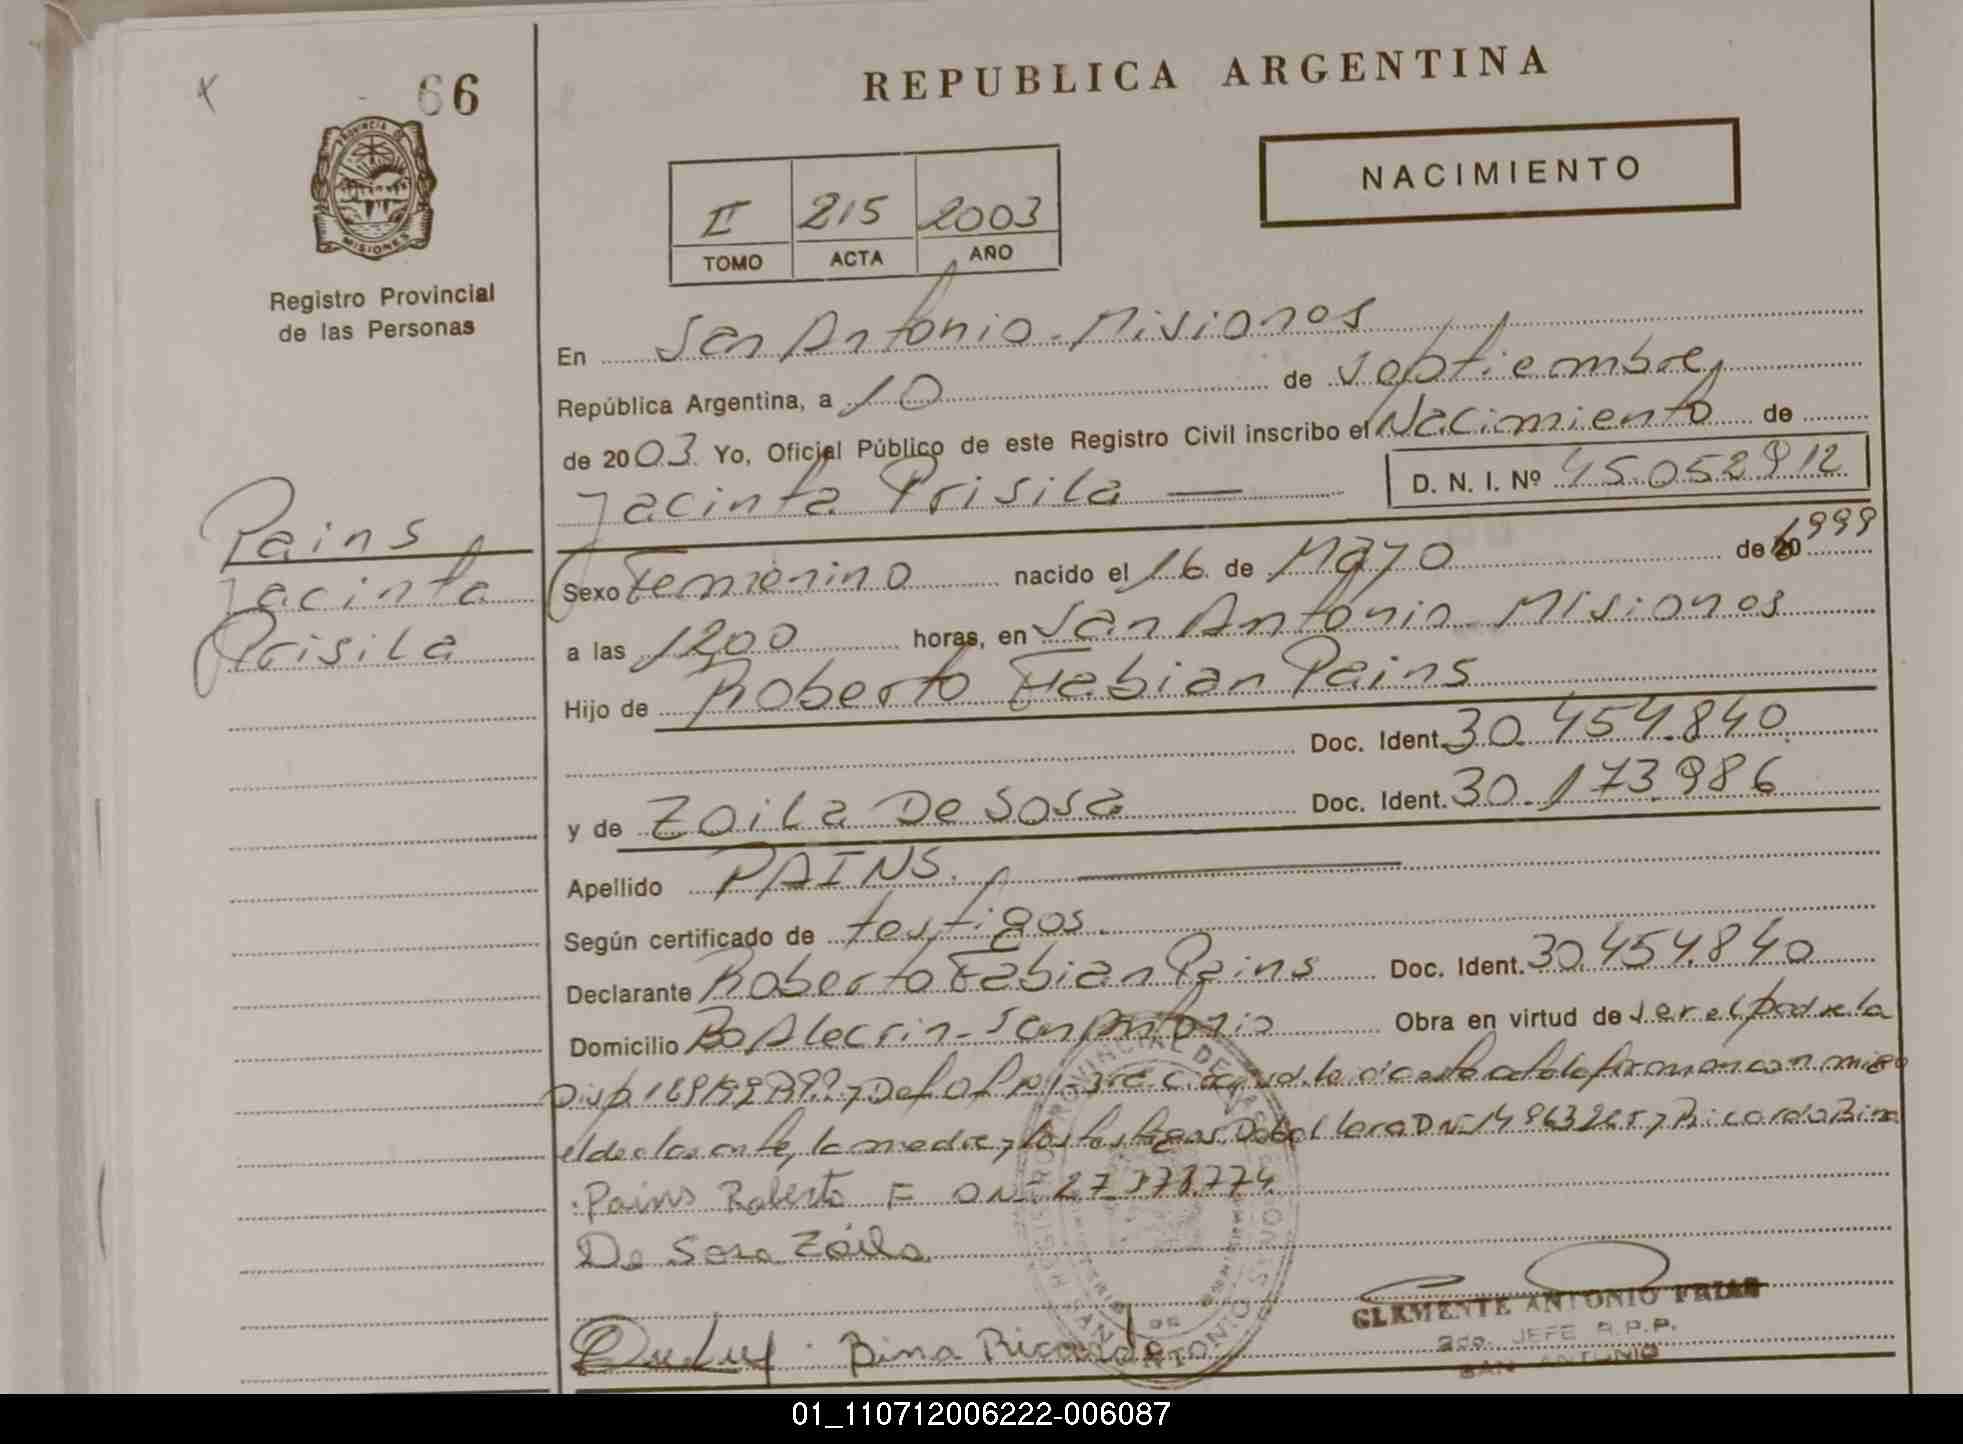 66
PROVINCIA DE
MISIONES
Registro Provincial
de las Personas
REPUBLICA ARGENTINA
NACIMIENTO
II 215 2003
TOMO ACTA AÑO
En San Antonio - Misiones
República Argentina, a 10 de septiembre
de 2003 Yo, Oficial Público de este Registro Civil inscribo el Nacimiento de
Jacinta Prisila D. N. I. Nº 45.052.912
Pains
Jacinta
Prisila
Sexo Femenino nacido el 16 de Mayo de 1999
a las 1200 horas, en San Antonio Misiones
Hijo de Roberto Fabian Pains
Doc. Ident. 30.454.840
y de Zoila De Sosa Doc. Ident. 30.173.986
Apellido PAINS.
Según certificado de testigos.
Declarante Roberto Fabian Pains Doc. Ident. 30.454.840
Domicilio Bo Alecrin - San Antonio Obra en virtud de ser el padre la
Disp. firman conmigo
el declarante, la madre y los testigos Ricardo Bina
Pains Roberto F DNI 27.378.774
De Sosa Zoila
Bina Ricardo
CLEMENTE ANTONIO FRIAS
2do. JEFE R.P.P.
SAN ANTONIO
01_110712006222-006087